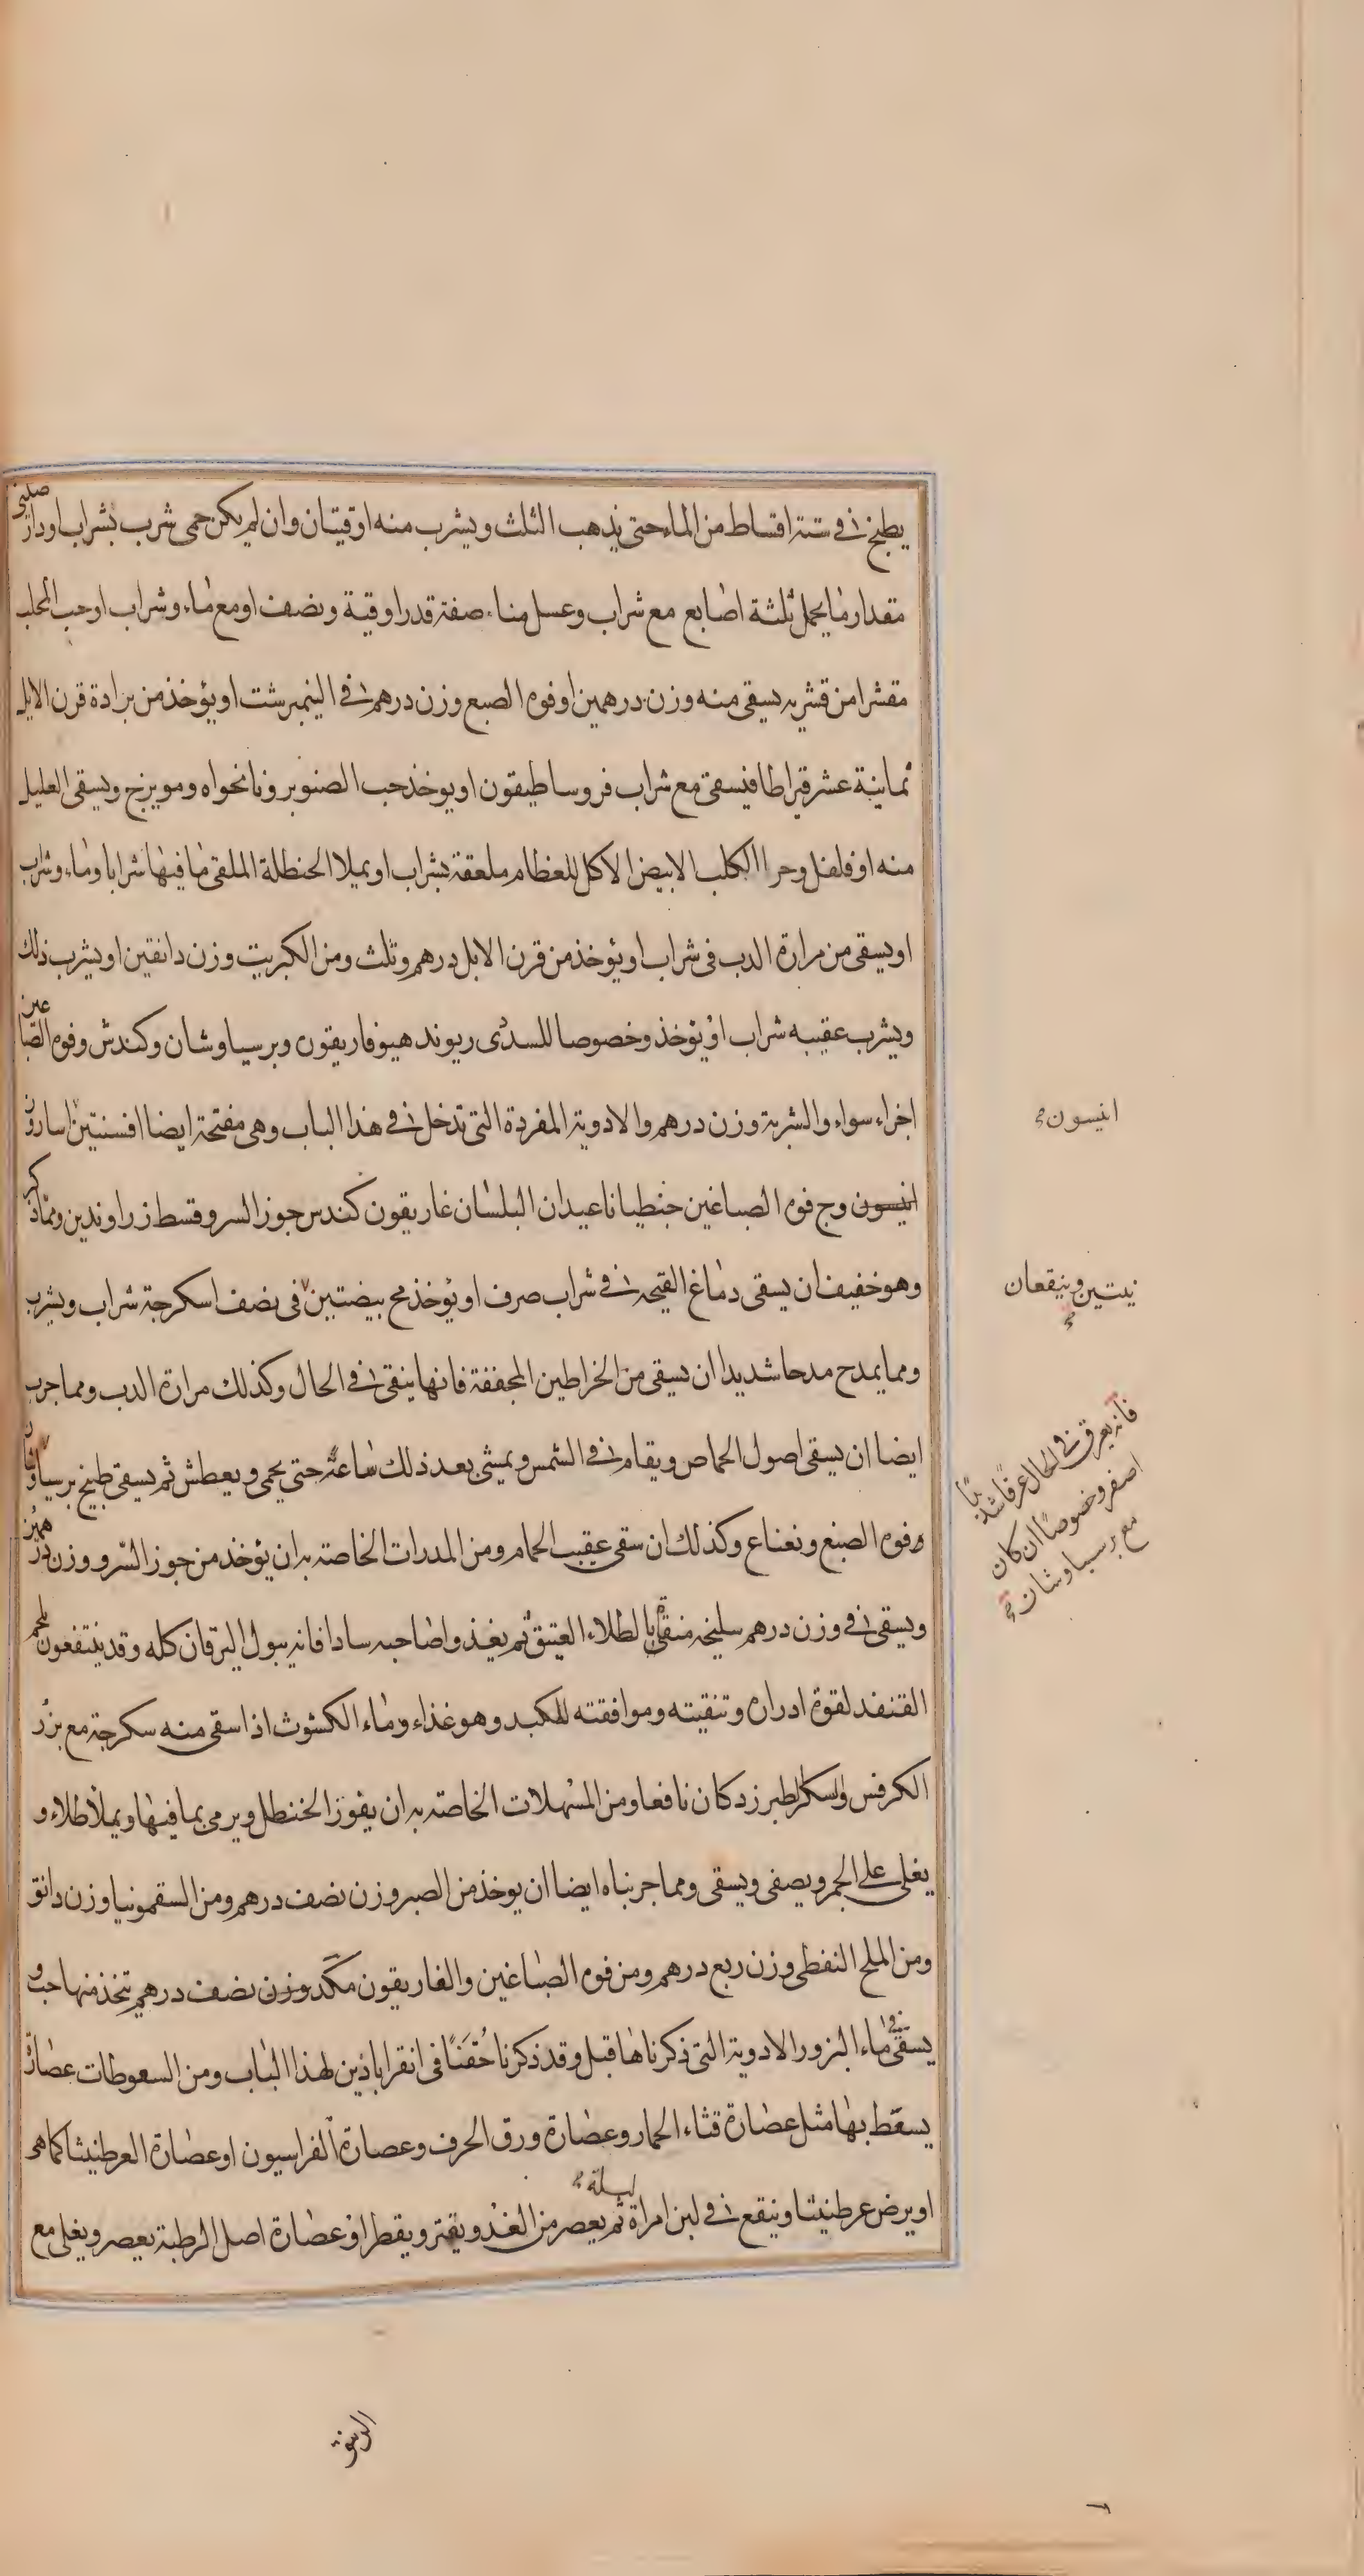 يطبخ في ستة اقساط من الماء حتى يذهب الثلث ويشرب منه اوقيتان وان لم يكن حمى شرب بشراب او دارصيني
مقدار ما يحمل ثلثة اصابع مع شراب وعسل مناصفة قدر اوقية ونصف او مع ماء وشراب او حب المحلب
مقشرا من قشريه يسقى منه وزن درهمين او فوه الصبغ وزن درهم في النيمبرشت او يؤخذ من برادة قرن الايل
ثمانية عشر قيراطا فيسقى مع شراب فروساطيقون او يوخذ حب الصنوبر ونانخواه ومويزج ويسقى العليل
منه او فلفل وحرا الكلب الابيض الاكل للعظام ملعقة بشراب او يملا الحنظلة الملقى ما فيها شرابا وماء وشراب
او يسقى من مرارة الدب في شراب او يؤخذ من قرن الايل درهم وثلث ومن الكبريت وزن دانقين او يشرب ذلك
ويشرب عقيبه شراب او يؤخذ وخصوصا للسدى ريوند هيوفاريقون وبرسياوشان وكندش وفوه الصباغين
اجزاء سواء والشربة وزن درهم والادوية المفردة التي تدخل في هذا الباب وهي مفتحة ايضا افسنتين اسارون
انيسون وج فوه الصباغين جنطيانا عيدان البلسان غاريقون كندس جوز السرو قسط زراوندين ومما ذكر
وهو خفيف ان يسقى دماغ القبجه في شراب صرف او يؤخذ مح بيضتين في نصف اسكرجة شراب ويشرب
ومما يمدح مدحا شديدا ان يسقى من الخراطين المجففة فانها ينقى في الحال وكذلك مرارة الدب ومما جرب
ايضا ان يسقى اصول الحماص ويقام في الشمس ويمشى بعد ذلك ساعة حتى يحمى ويعطش ثم يسقى طبيخ برسياوشان
وفوه الصبغ ونعناع وكذلك ان سقى عقيب الحمام ومن المدرات الخاصة به ان يؤخذ من جوز السرو وزن درهمين
ويسقى في وزن درهم سليخه منقى بالطلاء العتيق ثم يغذوا صاحبه سادا فانه يبول اليرقان كله وقد ينتفعون بلحم
القنفد لقوة ادراره وتنقيته وموافقته للكبد وهو غذاء وماء الكشوث اذا سقى منه سكرجة مع بزر
الكرفس والسكر الطبرزد كان نافعا ومن المسهلات الخاصة به ان يقوز الحنظل ويرمى بما فيها ويملأ طلاء و
يغلى على الجمر ويصفى ويسقى ومما جربناه ايضا ان يوخذ من الصبر وزن نصف درهم ومن السقمونيا وزن دانق
ومن الملح النفطى وزن ربع درهم ومن فوه الصباغين والغاريقون مكد وزن نصف درهم تتخذ منها حب و
يسقى في ماء البزور الادوية التي ذكرناها قبل وقد ذكرنا حُقَنًا في انقراباذين لهذا الباب ومن السعوطات عصارة
يسعّط بها مثل عصارة قثاء الحمار وعصارة ورق الحرف وعصارة الفراسيون او عصارة العرطنيثا كما هي
او يرض عرطنيثا وينقع في لبن امراة ليلة ثم يعصر من الغد ويفتر ويقطر او عصارة اصل الرطبة يعصر ويغلى مع
انيسون
نيتين وينقعان
فانه يعرق في الحال عرقا شديدا
اصفر وخصوصا ان كان
مع برسياوشان